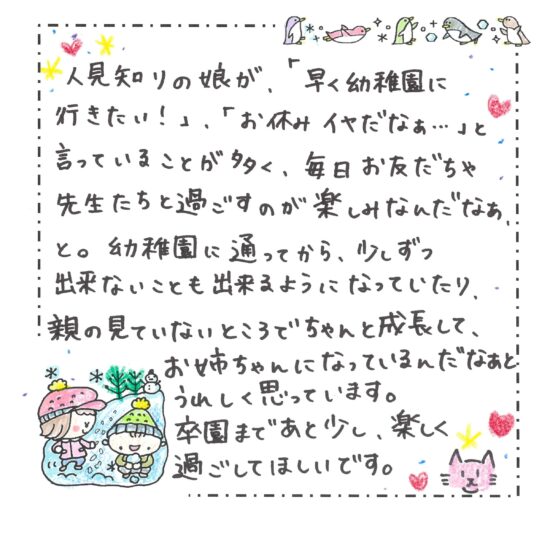 人見知りの娘が、「早く幼稚園に
行きたい！」、「お休みイヤだなぁ…」と
言っていることが多く、毎日お友だちや
先生たちと過ごすのが楽しみなんだなぁ、
と。幼稚園に通ってから、少しずつ
出来ないことも出来るようになっていたり、
親の見ていないところでちゃんと成長して、
お姉ちゃんになっているんだなぁと
うれしく思っています。
卒園まであと少し、楽しく
過ごしてほしいです。